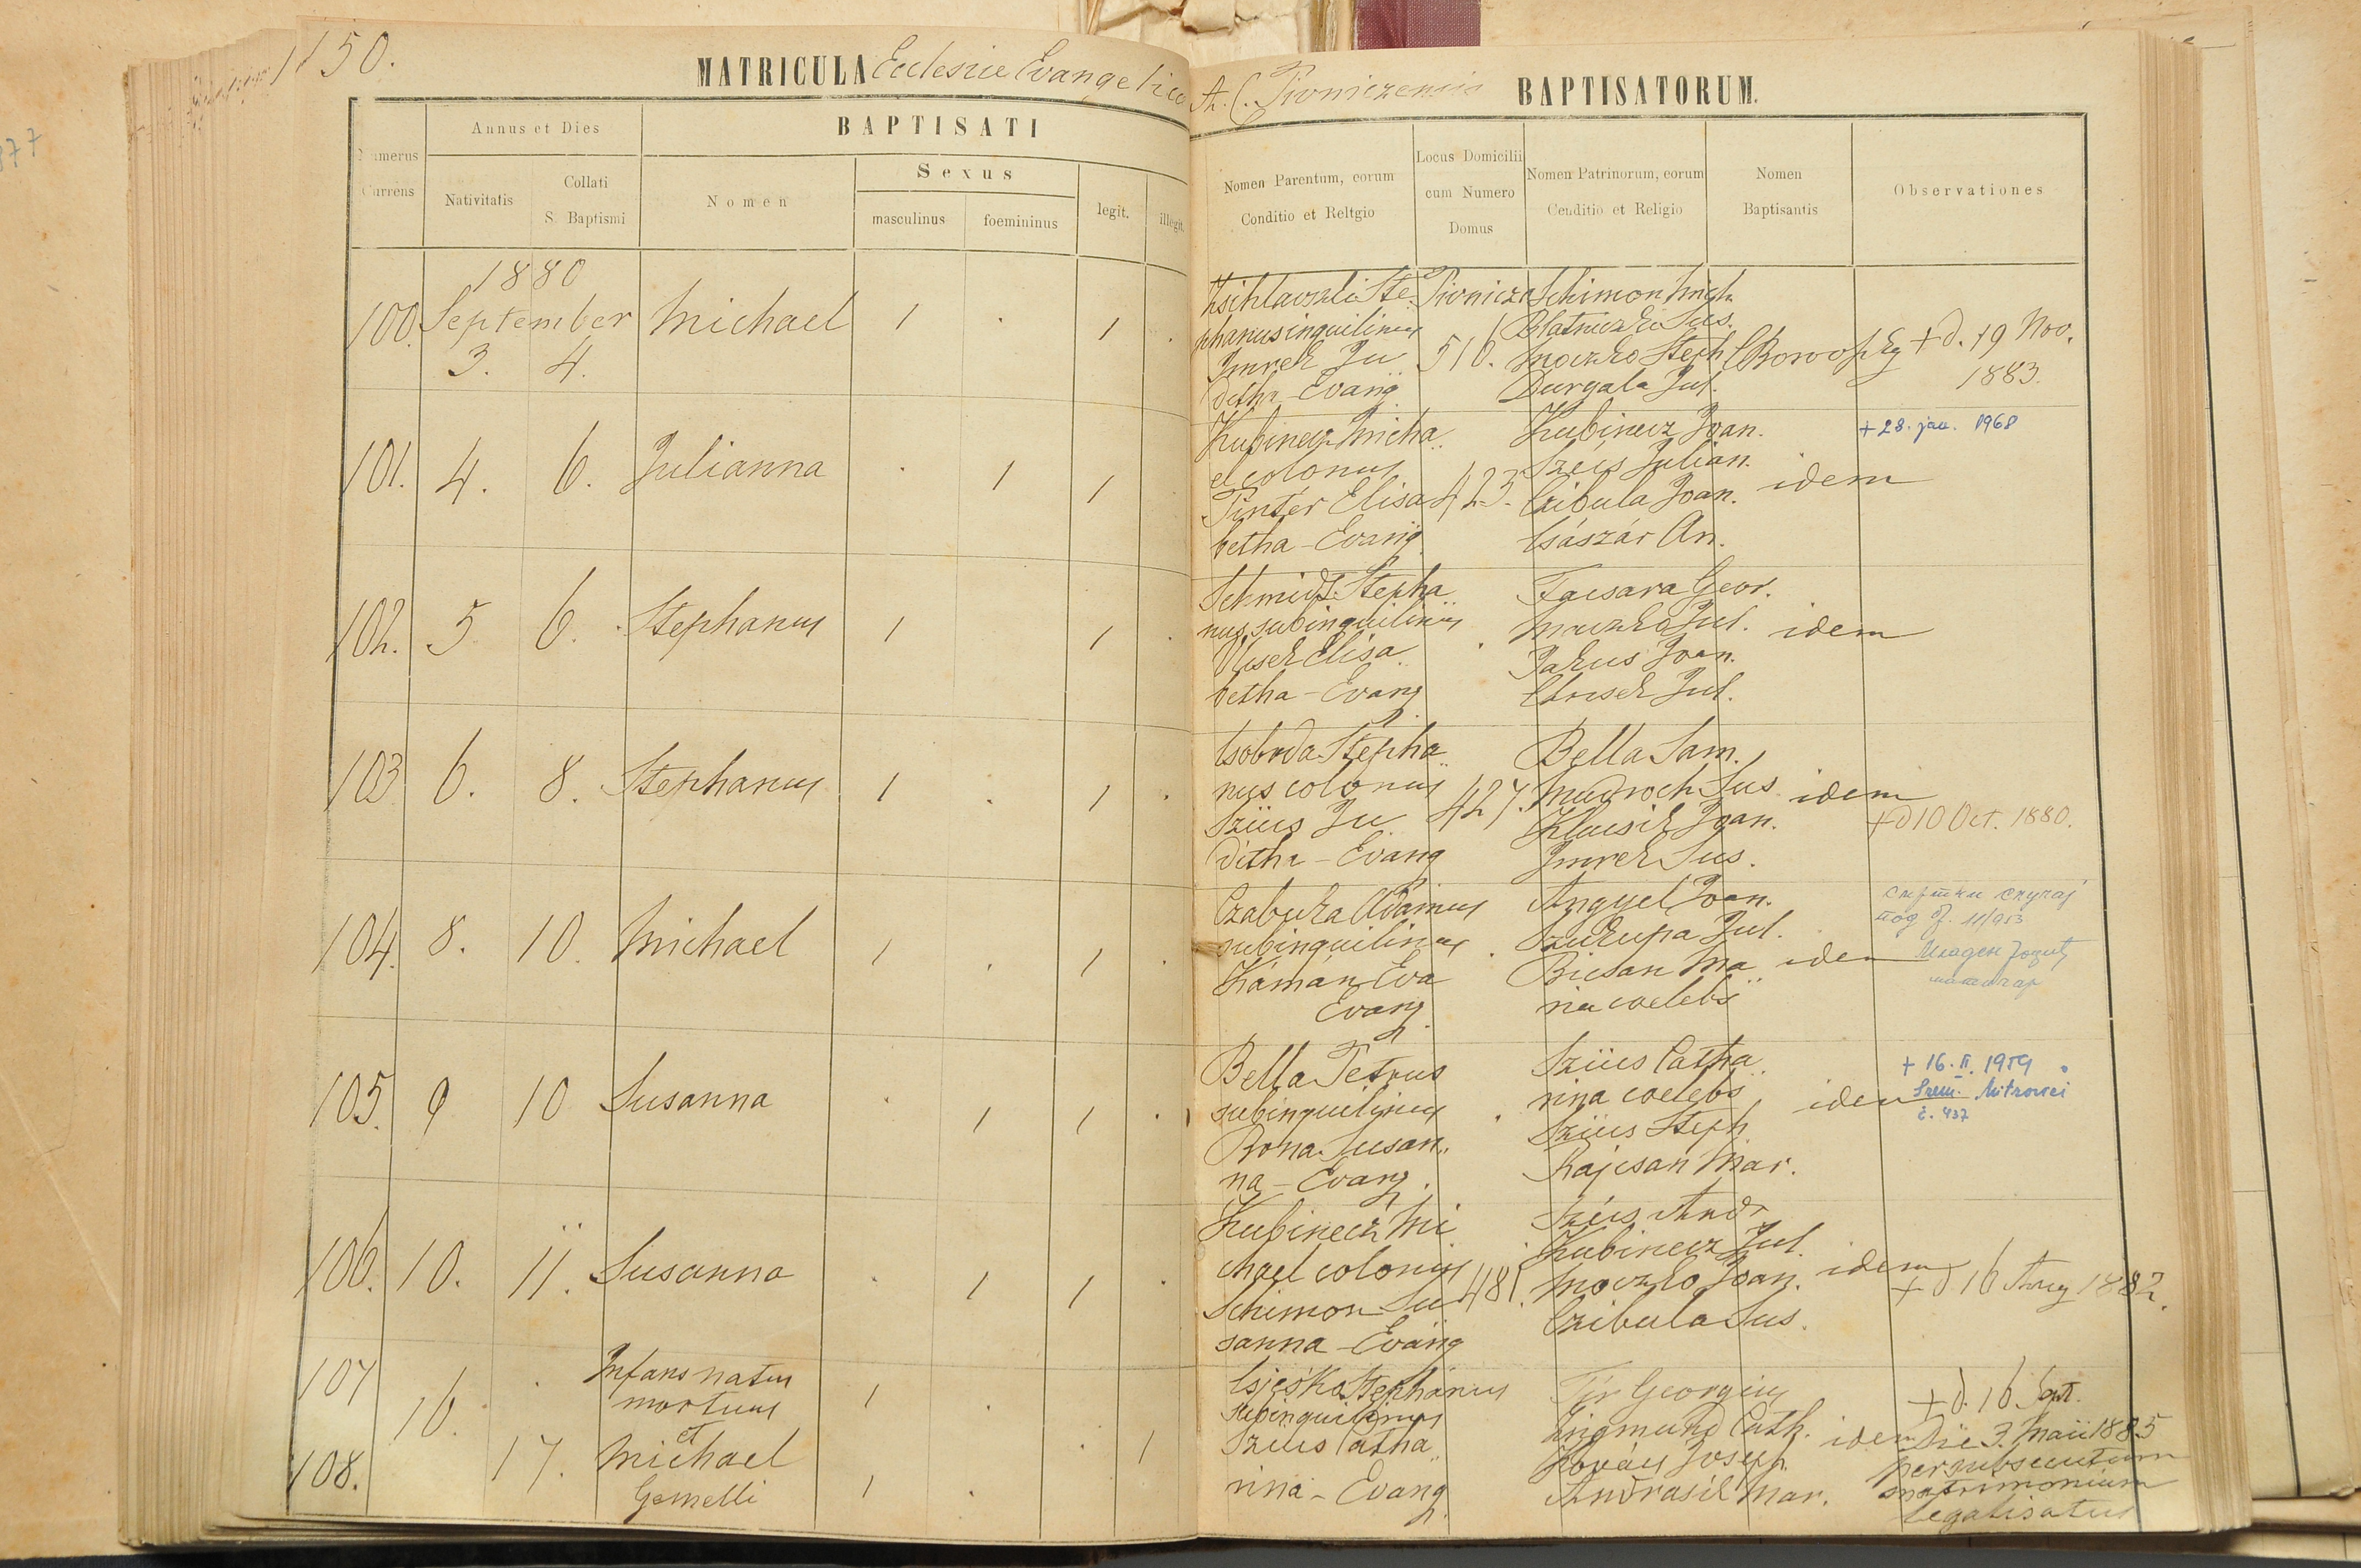 150.
MATRICULA Ecclesiae Evangelico
A. C. Pivniczensis BAPTISATORUM.
Numerus Currens
Annus et Dies
Nativitatis
Collati S. Baptismi
BAPTISATI
Nomen
Sexus
masculinus
foemininus
legit.
illegit.
Nomen Parentum, eorum Conditio et Reltgio
Locus Domicilii cum Numero Domus
Nomen Patrinorum, eorum Conditio et Religio
Nomen Baptisantis
Observationes
1880
100. September 3. 4. Michael 1 . 1 .
Ste
phanus inquilinus
Imrek Ju
ditha - Evang
Pivnicza
510.
Schimon Mich.
Sus.
Moczko Steph
Durgala Jul.
Borovszky
+ d. 19 Nov.
1883.
101. 4. 6. Julianna . 1 1
Kubinecz Micha
el colonus
Pinter Elisa
betha - Evang
423.
Kubinecz Joan.
Szüts Julian.
Czibula Joan.
Császár An.
idem
+ 28. jan. 1968
102. 5 6. Stephanus 1 1 .
Schmidt Stepha
nus subinquilinus
Elisa
betha - Evang
.
Facsara Geor.
Jul.
Jakus Joan.
Jul.
idem
103 6. 8. Stephanus 1 . 1 .
Stepha
nus colonus
Szüts Ju
ditha - Evang
427.
Bella Sam.
Madroch Sus
Joan.
Imrek Sus.
idem
+ d 10 Oct. 1880.
104. 8. 10. Michael 1 . 1 .
Czabuka Adamus
subinquilinus
Kámán Eva
Evang
.
Angyel Joan.
Jul.
Ma
ria coelebs
idem
под 11/953
105. 9 10 Susanna . 1 1 .
Bella Petrus
subinquilinus
Rona Susan
na - Evang.
.
Szüts Catha
rina coelebs
Szüts Steph
Rajcsan Mar.
idem
+ 16. II. 1959
Srem. Mitrovici
č. 437
106. 10. 11. Susanna . 1 1 .
Kubinecz Mi
chael colonus
Schimon Su
sanna - Evang
481.
Szüts Andr
Kubinecz Jul.
Moczko Joan.
Czibula Sus.
idem
+ d. 16 Aug 1882.
107 16. . Infans natus
mortuus 1 .
et
108. 17. Michael 1 . . 1
Gemelli
Stephanus
subinquilinus
Szüts Catha
rina - Evang.
Georgius
Zsigmund Cath.
Kovács Joseph
Andrasik Mar.
idem
+ d. 16 Sept.
Die 3. Maii 1885
per subsecutum
matrimonium
legalisatus